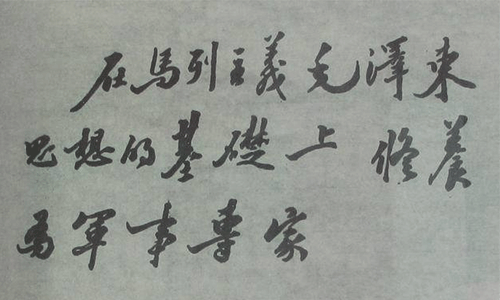 在馬列主義毛澤東
思想的基礎上 修養
為軍事專家